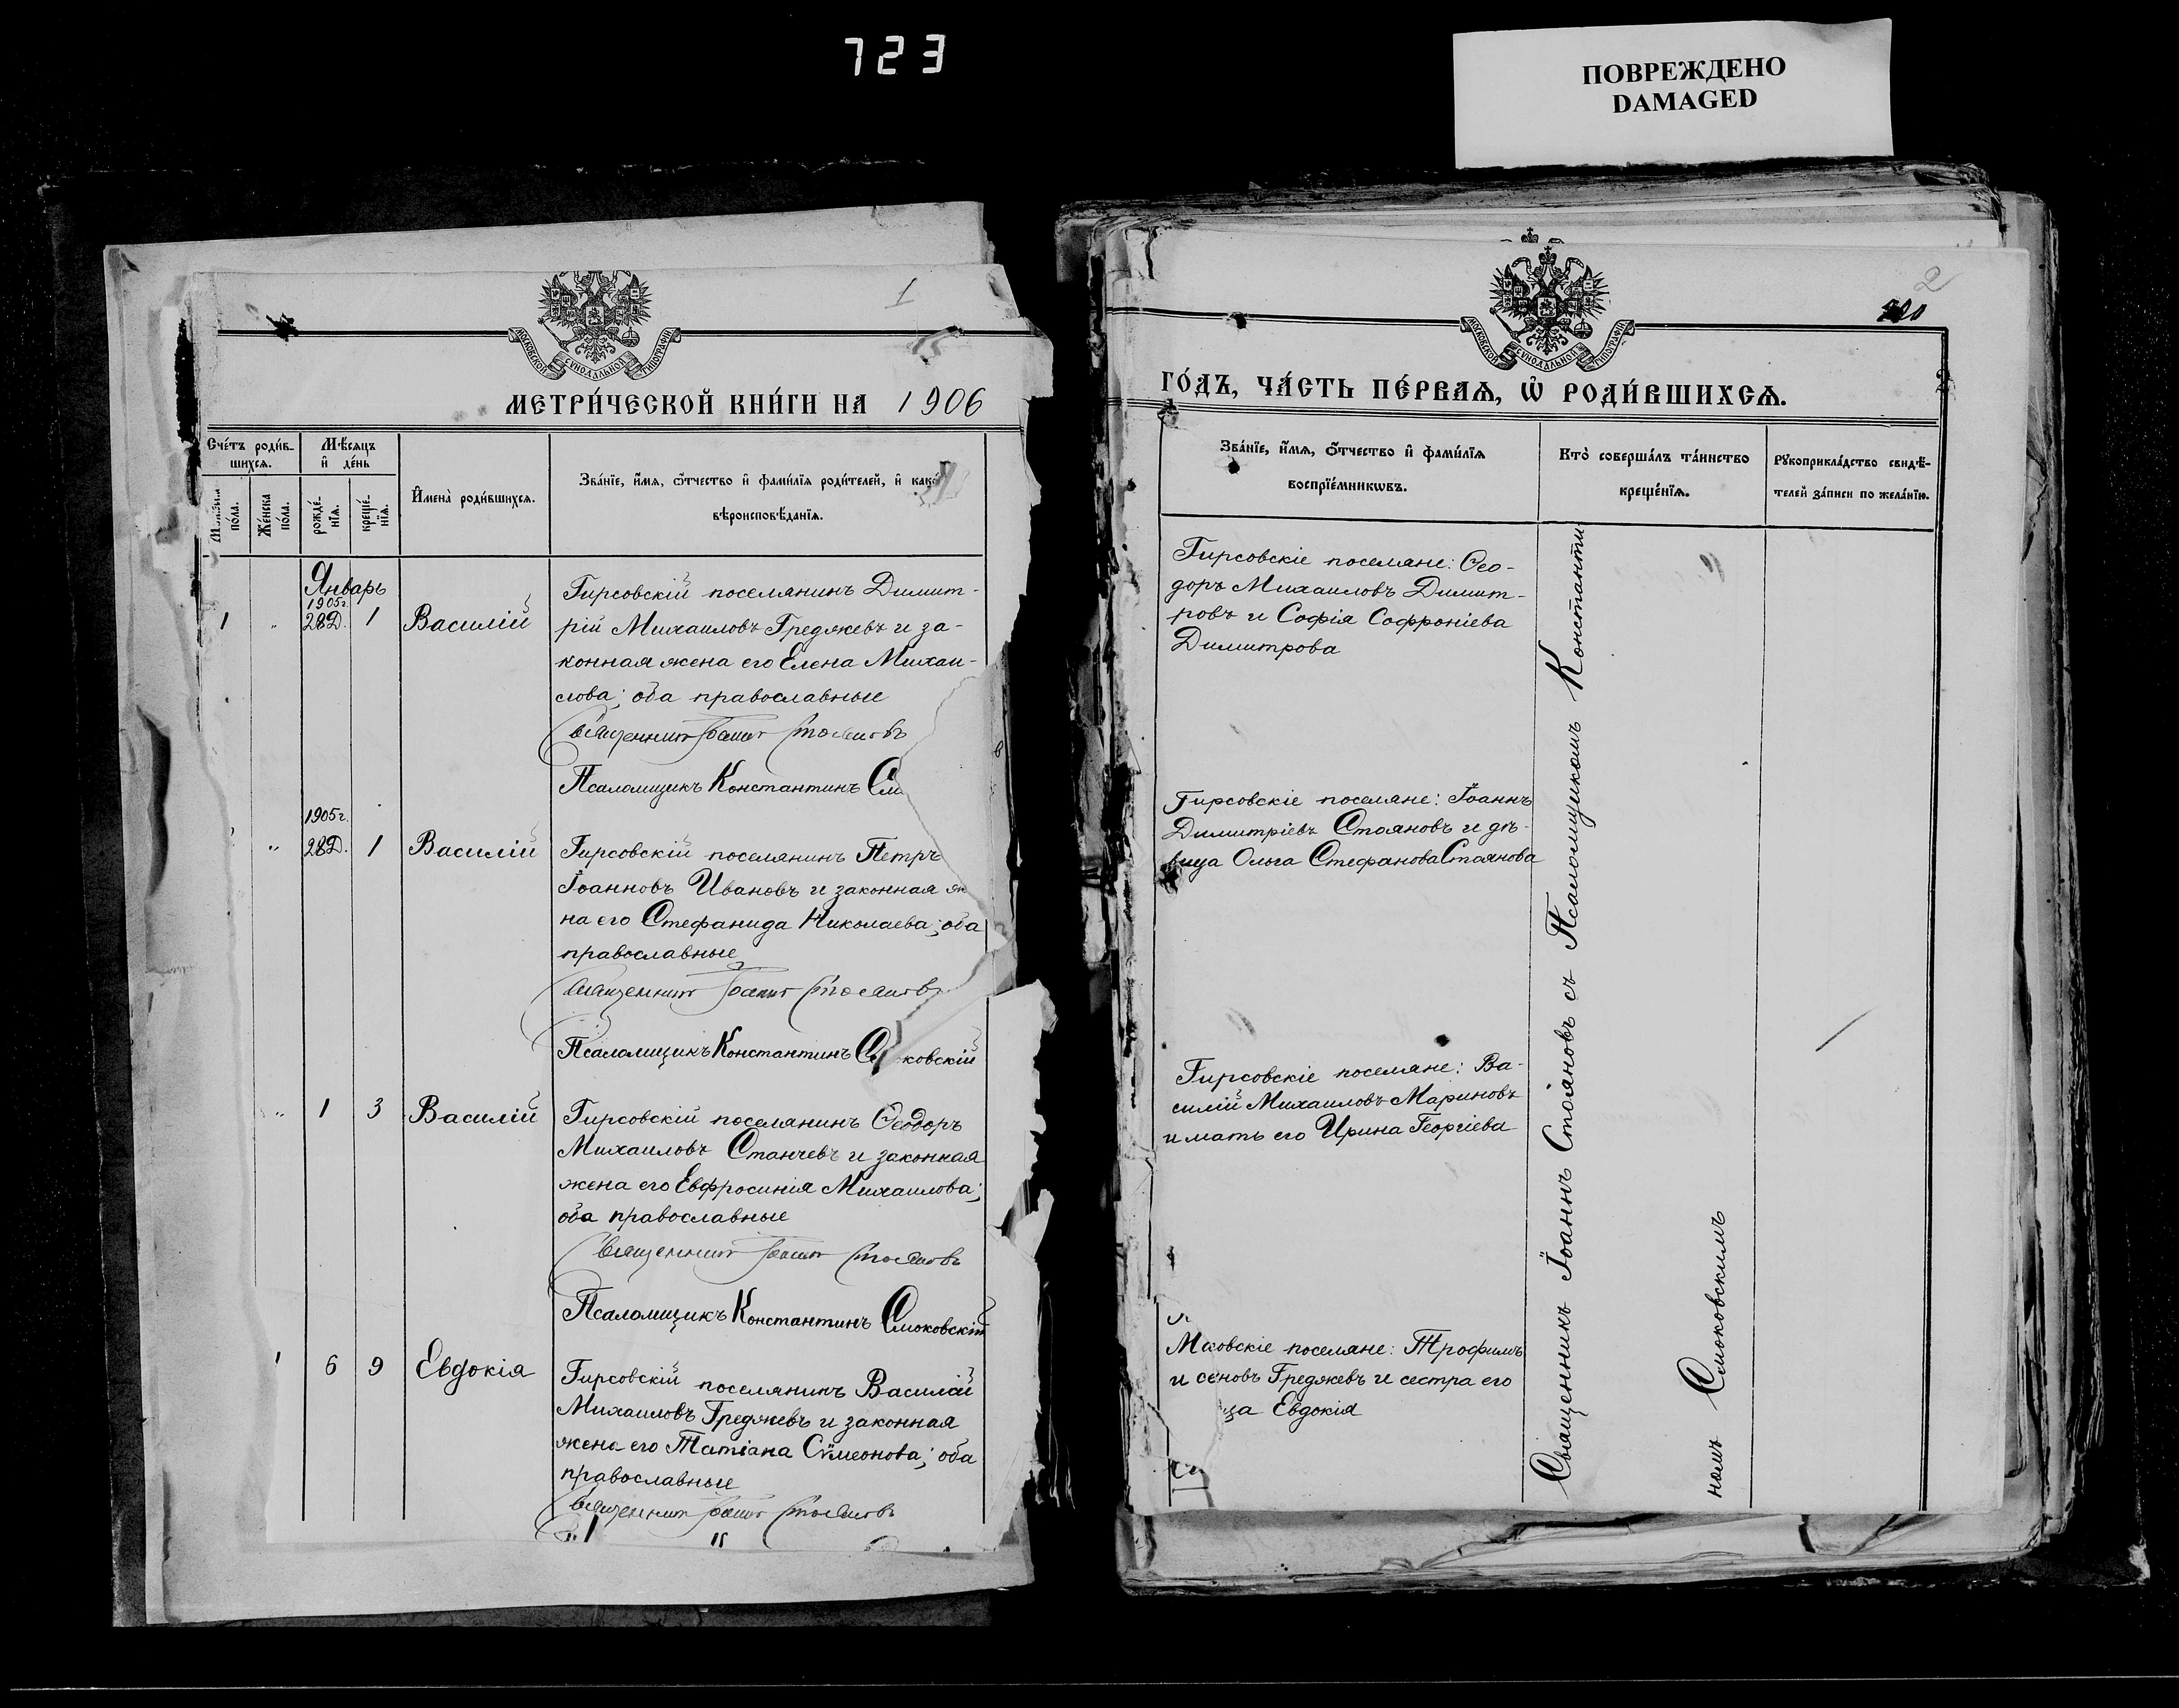 723
ПОВРЕЖДЕНО
DAMAGED
1
МОСКОВСКОЙ СѴНОДАЛЬНОЙ ТИПОГРАФІИ
МЕТРИ́ЧЕСКОЙ КНИ́ГИ НА 1906
Сче́тъ роди́в-
шихся.
Мѣ́сяцъ
и҆ де́нь
по́ла.
Же́нска
по́ла.
рожде́-
нїѧ.
креще́-
нїѧ.
И҆мена̀ роди́вшихсѧ.
Зва́нїе, и҆́мѧ, ѻ҆́тчество и҆ фами́лїѧ роди́телей, и҆ како́
вѣроисповѣ́данїѧ.
Январь
1905г.
1 " 28Д. 1 Василій
Гирсовскій поселянинъ Димит-
рій Михаиловъ Греджевъ и за-
конная жена его Елена Михаи-
лова; оба православные
Священникъ Іоаннъ Стояновъ
Псаломщикъ Константинъ См
1905г.
" 28Д. 1 Василій
Гирсовскій поселянинъ Петръ
Іоанновъ Ивановъ и законная же
на его Стефанида Николаева; оба
православные
Священникъ Іоаннъ Стояновъ
Псаломщикъ Константинъ С ковскій
" 1 3 Василій
Гирсовскій поселянинъ Ѳеодоръ
Михаиловъ Станчевъ и законная
жена его Евфросинія Михаилова;
оба православные
Священникъ Іоаннъ Стояновъ
Псаломщикъ Константинъ Смоковскій
1 6 9 Евдокія
Гирсовскій поселянинъ Василій
Михаиловъ Греджевъ и законная
жена его Татіана Сѵмеонова; оба
православные
Священникъ Іоаннъ Стояновъ
2
МОСКОВСКОЙ СѴНОДАЛЬНОЙ ТИПОГРАФІИ
ГО́ДЪ, ЧА́СТЬ ПЕ́РВАѦ, Ѽ РОДИ́ВШИХСѦ.
Зва́нїе, и҆́мѧ, ѻ҆́тчество и҆ фами́лїѧ
воспрїе́мникѡвъ.
Кто̀ соверша́лъ та́инство
креще́нїѧ.
Рꙋкоприкла́дство свидѣ́-
телей за́писи по жела́нїю.
Гирсовскіе поселяне: Ѳео-
доръ Михаиловъ Димит-
ровъ и Софія Софроніева
Димитрова
Гирсовскіе поселяне: Іоаннъ
Димитріевъ Стояновъ и дѣ-
вица Ольга Стефанова Стоянова
Гирсовскіе поселяне: Ва-
силій Михаиловъ Мариновъ
и мать его Ирина Георгіева
поселяне: Трофимъ
Греджевъ и сестра его
ца Евдокія
Священникъ Іоаннъ Стояновъ съ Псаломщикомъ Константи
номъ Смоковскимъ